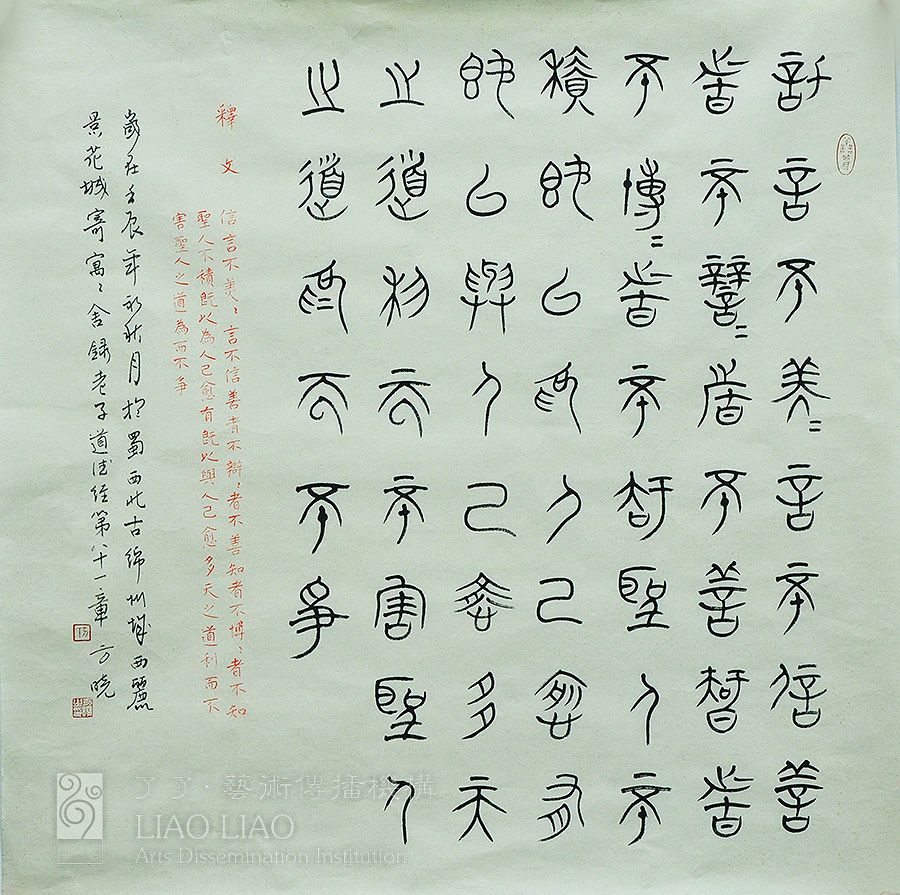 信言不美〻言不信善
者不辯〻者不善智者
不博〻者不知聖人不
積既以為人己愈有
既以與人己愈多天
之道利而不害聖人
之道為而不爭
釋文
信言不美〻言不信善者不辯〻者不善知者不博〻者不知
聖人不積既以為人己愈有既以與人己愈多天之道利而不
害聖人之道為而不爭
歲在壬辰年初秋月於蜀西北古綿州城西麗
景花城寄寓〻舍録老子道德經第八十一章 方曉
了了·藝術傳播機構
LIAO LIAO
Arts Dissemination Institution